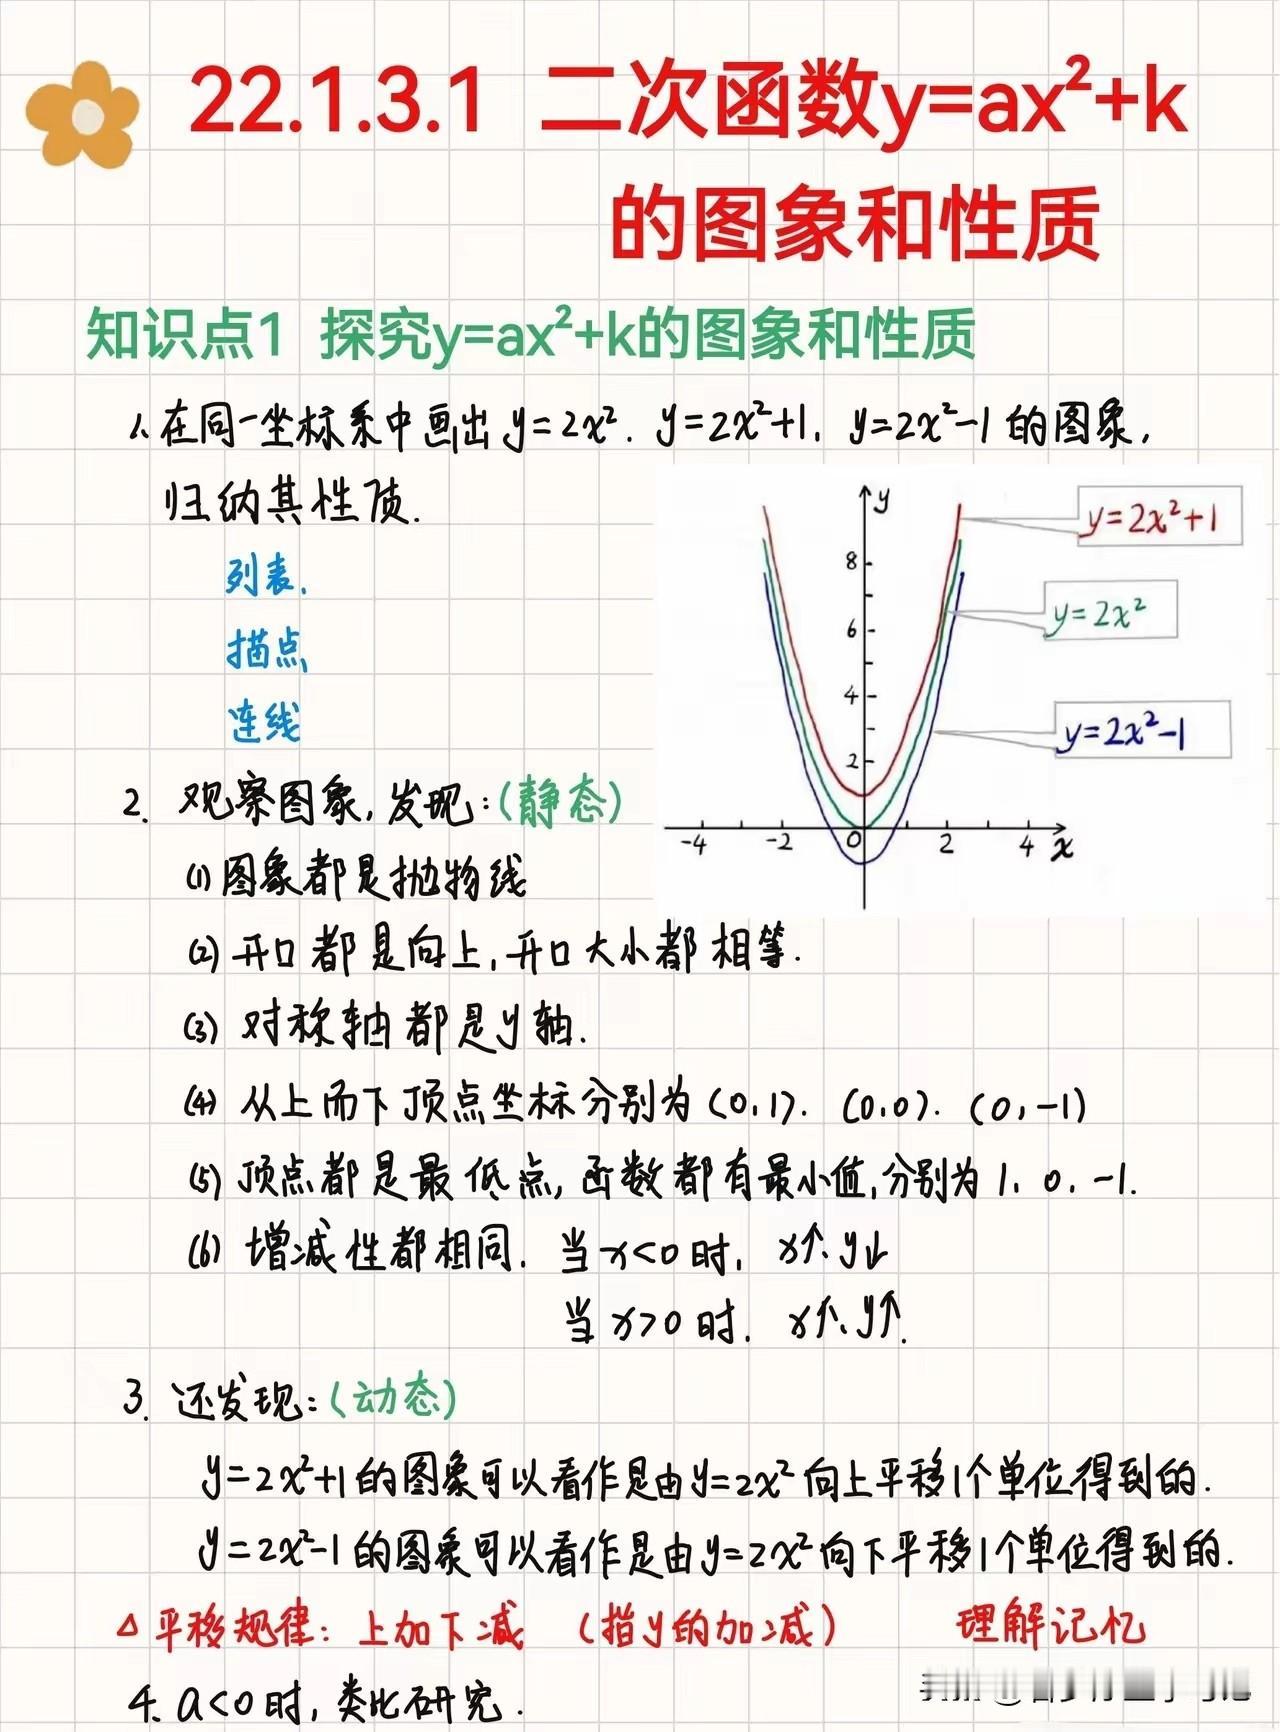 22.1.3.1 二次函数y=ax²+k
的图象和性质
知识点1 探究y=ax²+k的图象和性质
1、在同一坐标系中画出 y=2x². y=2x²+1, y=2x²-1 的图象,
归纳其性质.
列表.
描点
连线
y
8
6
4
2
-4 -2 0 2 4 x
y=2x²+1
y=2x²
y=2x²-1
2. 观察图象,发现:(静态)
(1) 图象都是抛物线
(2) 开口都是向上,开口大小都相等.
(3) 对称轴都是y轴.
(4) 从上而下顶点坐标分别为(0,1). (0,0). (0,-1)
(5) 顶点都是最低点,函数都有最小值,分别为1、0、-1.
(6) 增减性都相同. 当x<0时, x↑、y↓
当x>0时. x↑、y↑.
3. 还发现:(动态)
y=2x²+1的图象可以看作是由y=2x²向上平移1个单位得到的.
y=2x²-1的图象可以看作是由y=2x²向下平移1个单位得到的.
△平移规律:上加下减 (指y的加减) 理解记忆
4、a<0时,类比研究.